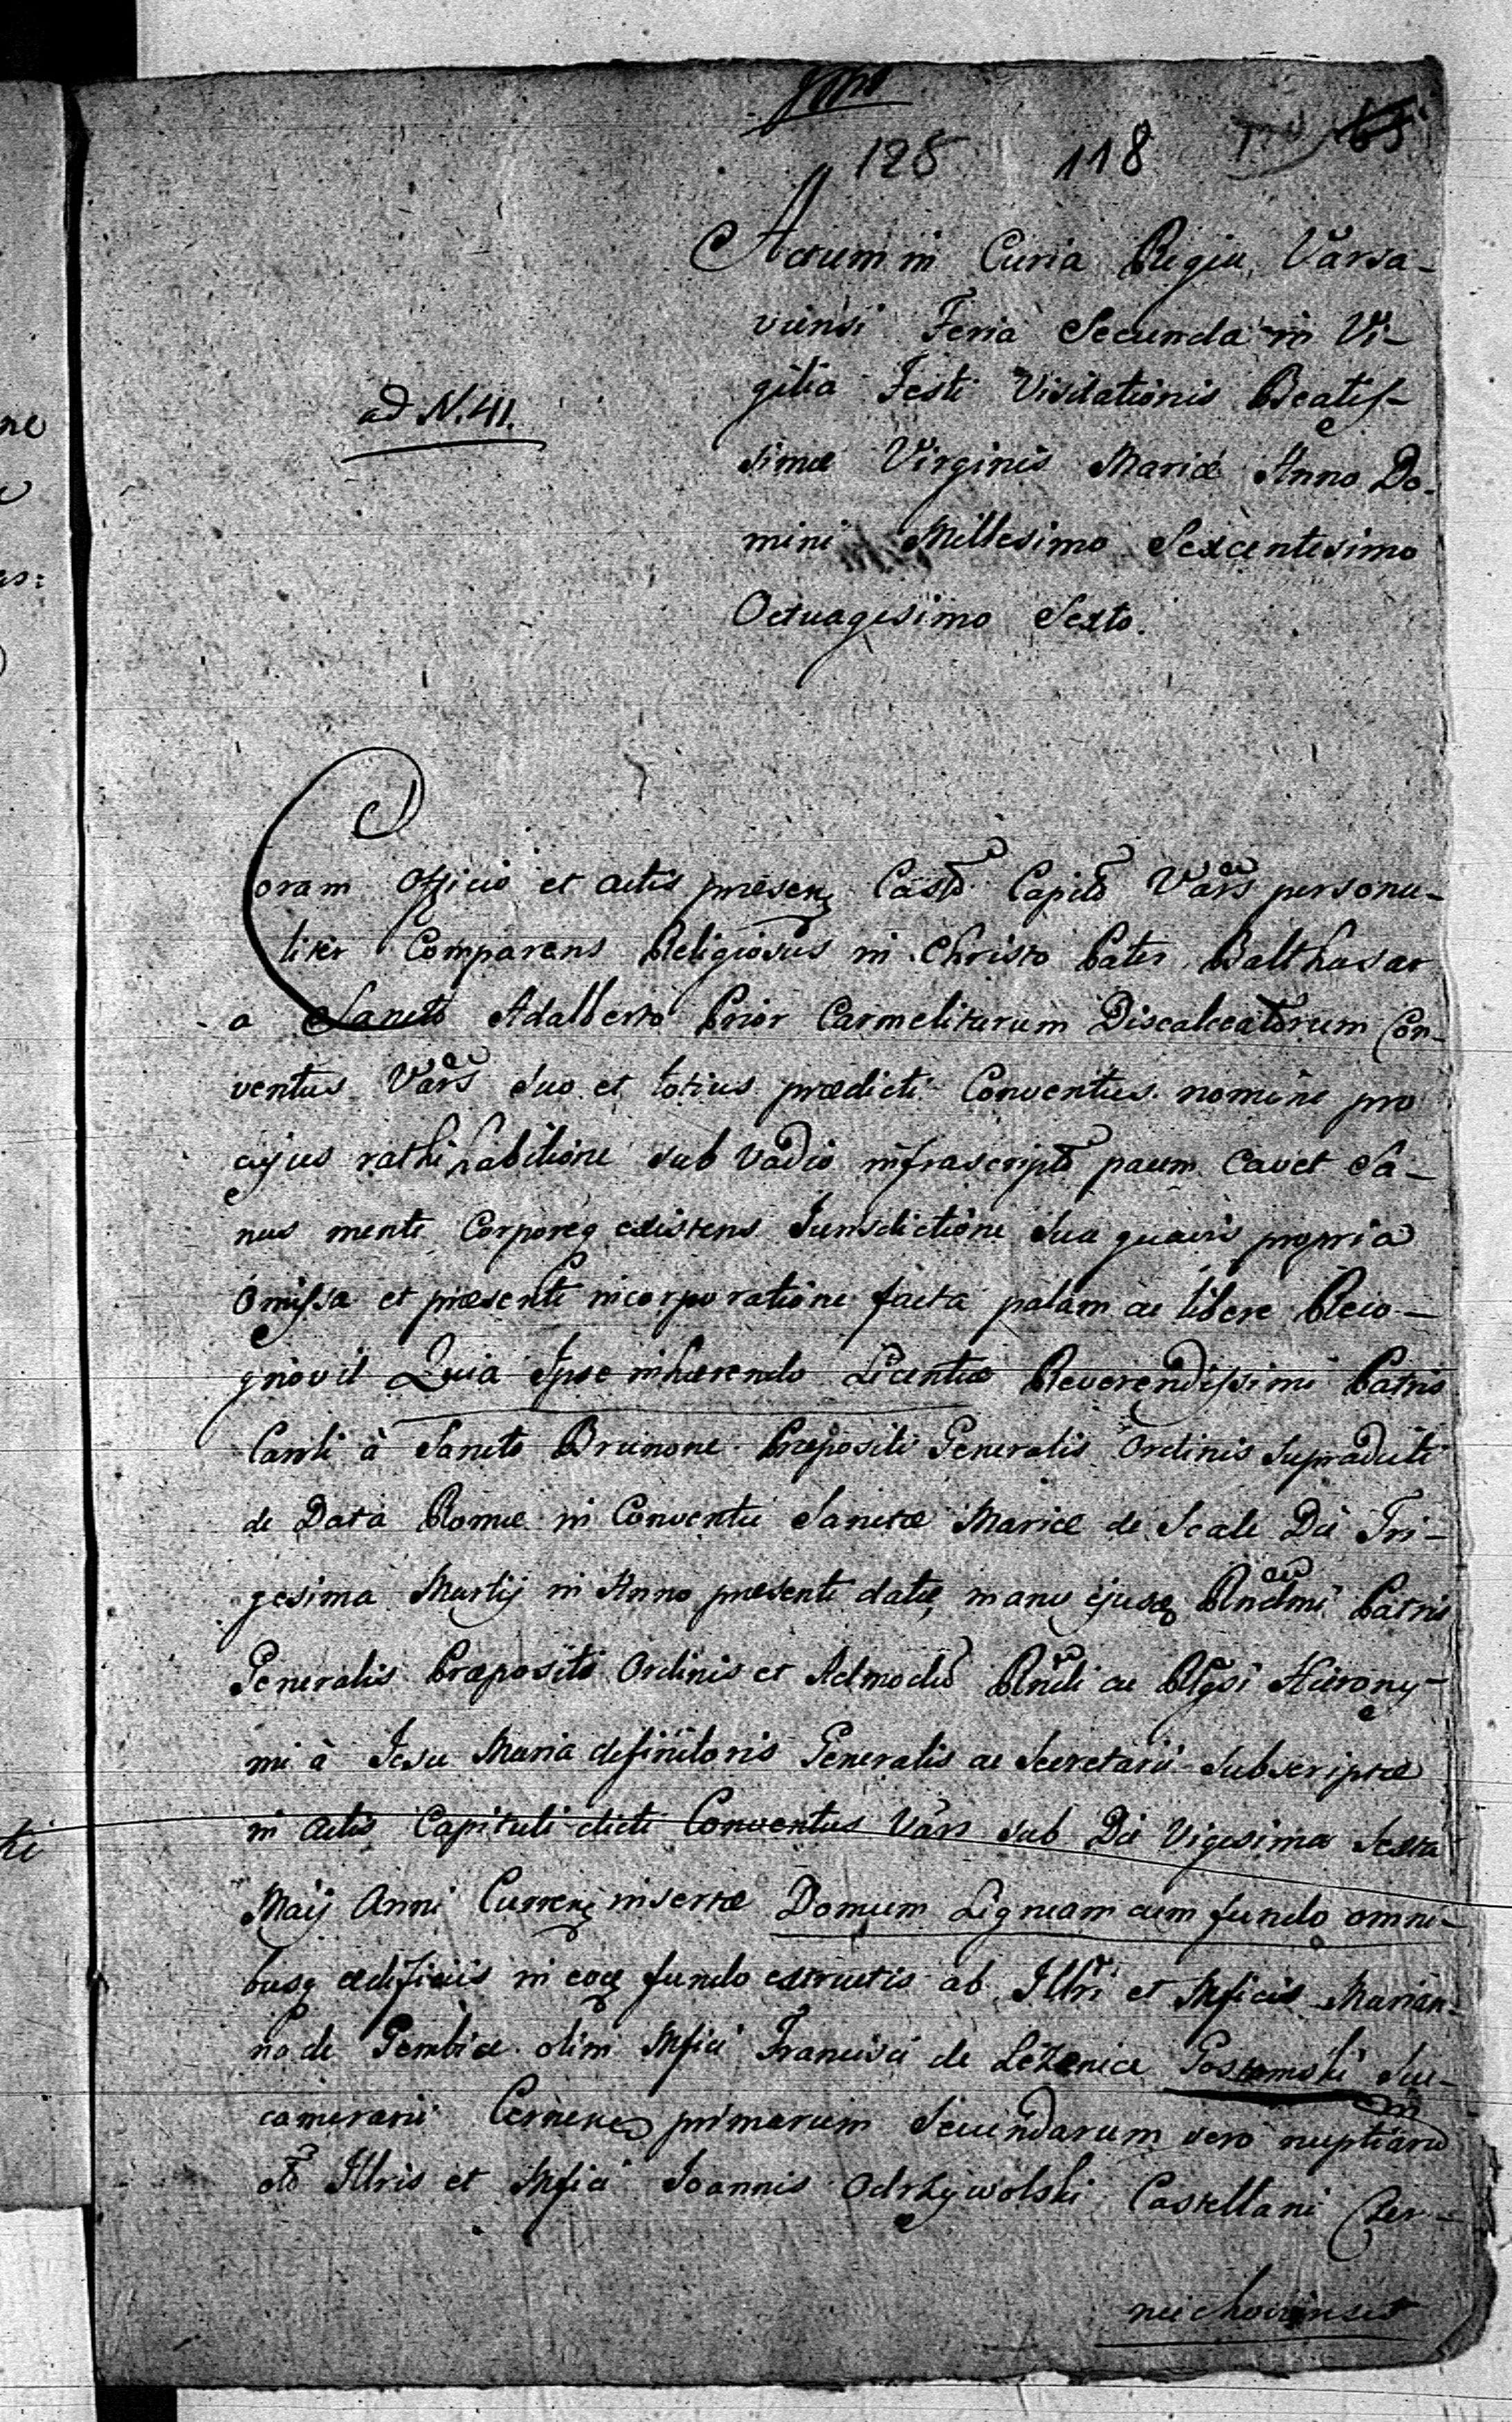 128 118 65
Actum in Curia Regia Varsa-
viensi Feria Secunda in Vi-
gilia Festi Visitationis Beatis-
simæ Virginis Mariæ Anno Do-
mini Millesimo Sexcentesimo
Octuagesimo Sexto.
ad N. 41.
Coram Officio et actis præsen Castr Capit Vars persona-
liter Comparens Religiosus in Christo Pater Balthasar
a Sancto Adalberto Prior Carmelitarum Discalceatorum Con-
ventus Vars suo et totius prædicti Conventus nomine pro
cujus rathihabitione sub vadio infrascripto cavet Sa-
nus mente Corporeq existens Jurisdictione sua quavis propria
omissa et præsenti incorporatione facta palam ac libere Reco-
gnovit Quia Ipse inhærendo Licentiæ Reverendissimi Patris
Caroli à Sancto Brunone Præpositi Generalis Ordinis Supradicti
de Data Romæ in Conventu Sanctæ Mariæ de Scale Die Tri-
gesima Martij in Anno præsenti datæ, manu ejusd Rndmi Patris
Generalis Præpositi Ordinis et Admodu Rndi ac Rlgsi Hierony-
mi à Jesu Maria definitoris Generalis ac Secretarii Subscriptæ
in actis Capituli dicti Conventus Vars sub Die Vigesima Sexta
Maij Anni Curren insertæ Domum Ligneam cum fundo omni-
busq ædificiis in eod fundo extructis ab Illri et Mfica Marian-
na de Gembice olim Mfici Francisci de Leżenice Gostomski Suc-
camerarii primarum Secundarum vero nuptiaru
Illris et Mfici Joannis Odrzywolski Castellani Czer-
niechoviensis